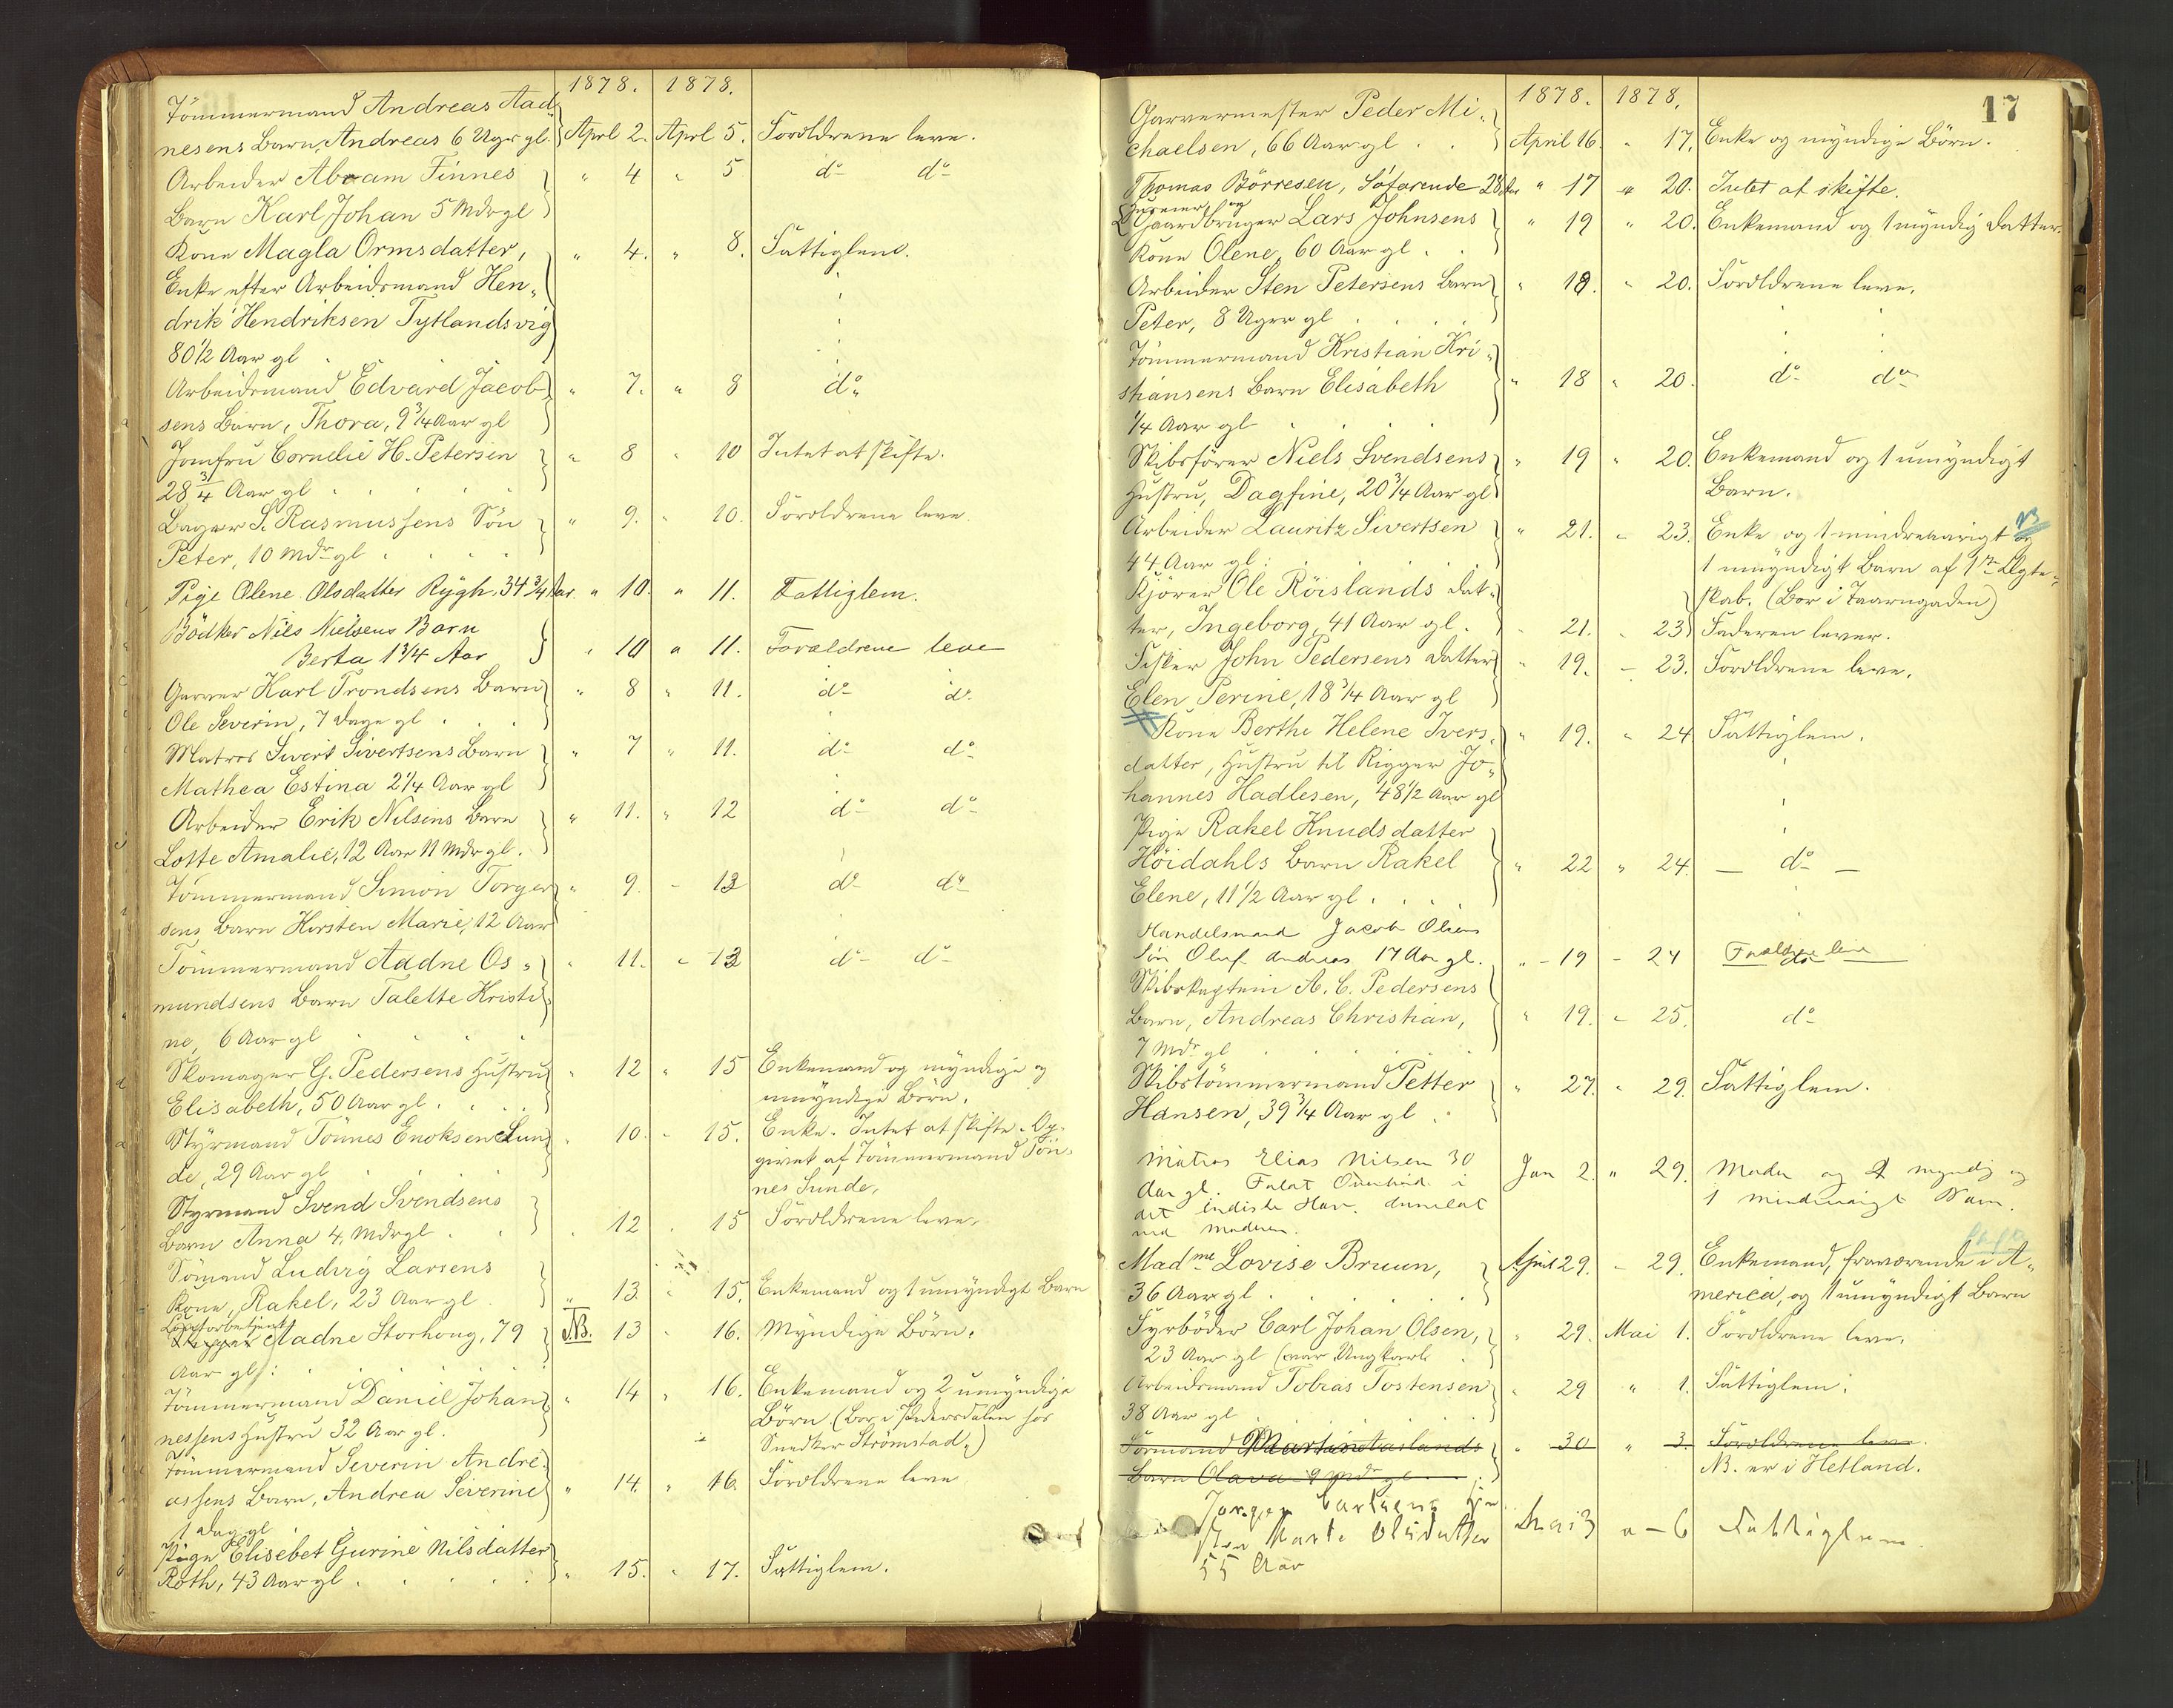 1878. 1878.
Tömmermand Andreas Aad„
nesens Barn, Andreas 6 Uger gl. Aprl 2. Aprl 5. Forældrene leve.
Arbeider Abram Finnes " 4 " 5 do do
Barn Karl Johan 5 Mdr gl
Kone Magla Ormsdatter, " 4. " 8. Fattiglem.
Enke efter Arbeidsmand Hen„
drik Hendriksen Tytlandsvig
80 1/2 Aar gl
Arbeidsmand Edvard Jacob " 7. " 8 do
sens Barn, Thora, 9 3/4 Aar gl
Jomfru Cornelie H. Petersen " 8 " 10 Intet at skifte.
28 3/4 Aar gl
Bager S. Rasmussens Sön " 9. " 10. Forældrene leve.
Peter, 10 Mdr gl
Pige Olene Olsdatter Rygh. 34 3/4 Aar. " 10. " 11. Fattiglem.
Bödker Nils Nielsens Barn
Berta 1 3/4 Aar " 10 " 11. Forældrene leve
Garver Karl Trondsens Barn " 8 " 11. do do
Ole Severin, 7 Dage gl
Matros Sivert Sivertsens Barn " 7 " 11. do do
Mathea Estina 2 1/4 Aar gl
Arbeider Erik Nilsens Barn " 11. " 12 do do
Lotte Amalie, 12 Aar 11 Mdr gl.
Tömmermand Simon Torger " 9. - 13 do do
sens Barn Kirsten Marie, 12 Aar
Tömmermand Aadne Os„ " 11. " 13 do do
mundsens Barn Talette Kristi
ne, 6 Aar gl
Skomager G. Pedersens Hustru " 12 " 15 Enkemand og myndige og
Elisabeth, 50 Aar gl. umyndige Börn.
Styrmand Tönnes Enoksen Lun " 10. " 15. Enke. Intet at skifte. Op„
de, 29 Aar gl givet af Tömmermand Tön„
nes Lunde,
Styrmand Svend Svendsens
Barn Anna 4, Mdr gl " 12 " 15 Forældrene leve.
Sömand Ludvig Larsens
Kone, Rakel, 23 Aar gl " 13 " 15. Enkemand og 1 umyndigt Barn
Aadne Storhoug, 79 NB. 13 " 16. Myndige Börn.
Aar gl:
Tömmermand Daniel Johan " 14 " 16. Enkemand og 2 umyndige
nessens Hustru 32 Aar gl. Börn (Bor i Pedersdalen hos
Snedker Strömstad.)
Tömmermand Severin Andre„
assens Barn, Andrea Severine " 14. " 16. Forældrene leve
1 Dag gl
Pige Elisebet Gurine Nilsdatter
Roth, 43 Aar gl " 15. " 17. Fattiglem.
17
1878. 1878.
Garvermester Peder Mi„
chaelsen, 66 Aar gl April 16. " 17. Enke og myndige Börn.
Thomas Börresen, Söfarende 28 Aar " 17 " 20. Intet at skifte.
Huseier og
Gaardbruger Lars Johnsens " 19 " 20. Enkemand og 1 myndig Datter.
Kone Olene, 60 Aar gl.
Arbeider Sten Petersens Barn " 18. " 20. Forældrene leve.
Peter, 8 Uger gl
Tömmermand Kristian Kri„
stiansens Barn Elisabeth " 18 " 20. do do
1/4 Aar gl
Skibsförer Niels Svendsens " 19 " 20. Enkemand og 1 umyndigt
Hustru, Dagfine, 20 3/4 Aar gl Barn.
Arbeider Lauritz Sivertsen " 21. " 23. Enke og 1 mindreaarigt og NB
44 Aar gl: 1 umyndigt Barn af 1ste Ægte„
skab. (Bor i Taarngaden)
Kjörer Ole Röislands Dat„
ter, Ingeborg, 41 Aar gl. " 21. " 23 Faderen lever.
Fisker John Pedersens Datter " 19. - 23. Forældrene leve.
Elen Perine, 18 3/4 Aar gl
Kone Berthe Helene Ivers„ " 19. " 24 Fattiglem.
datter, Hustru til Rigger Jo„
hannes Hadlesen, 48 1/2 Aar gl
Pige Rakel Knudsdatter
Höidahls Barn Rakel " 22 " 24. — do —
Elene, 11 1/2 Aar gl.
Handelsmand Jacob Olsens
Sön Oluf Andreas 17 Aar gl. " - 19 - 24 leve
Skibskaptein A. C. Pedersens
Barn, Andreas Christian, " 19. " 25. do
7 Mdr gl
Skibstömmermand Petter " 27. " 29. Fattiglem.
Hansen, 39 3/4 Aar gl
Matros Elias Nilsen 30 Jan 2. " 29. Moder og myndig og
Aar gl. Faldt Overbord i 1 mindreaarigt Barn.
det indiske Hav. Anmeldt
ved Moderen.
Madme Lovise Bruun, April 29. - 29. Enkemand, fraværende i A„
36 Aar gl merica, og 1 umyndigt Barn
Fyrböder Carl Johan Olsen, " 29. Mai 1. Forældrene leve.
23 Aar gl (var Ungkarl
Arbeidsmand Tobias Tostensen " 29 " 1. Fattiglem.
38 Aar gl
Formand Martin Aaslands " 30 " 3. Forældrene leve.
Barn Olava 9 Mdr gl NB. er i Hetland.
Jörgen Carlsens
Marte Olsdatter Mai 3 " - 6 Fattiglem.
55 Aar